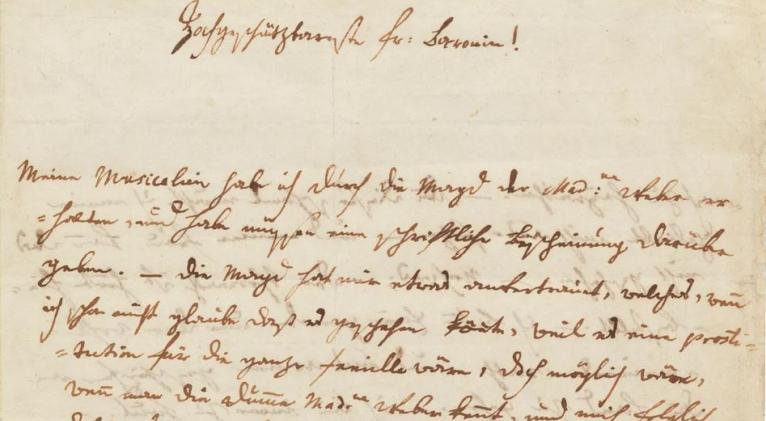 Hochschätzbareste fr: Baronin!
Meine Musicalien habe ich durch die Magd der Mad:me Weber er
=halten, und habe müssen eine schriftliche bescheinung darüber
geben. — die Magd hat mir etwas anvertrauet, welches, wenn
ich schon nicht glaube daß es geschehen könte, weil es eine prosti=
=tution für die ganze familie wäre, doch möglich wäre,
wenn man die dumme Mad:me Weber kennt, und mich folglich